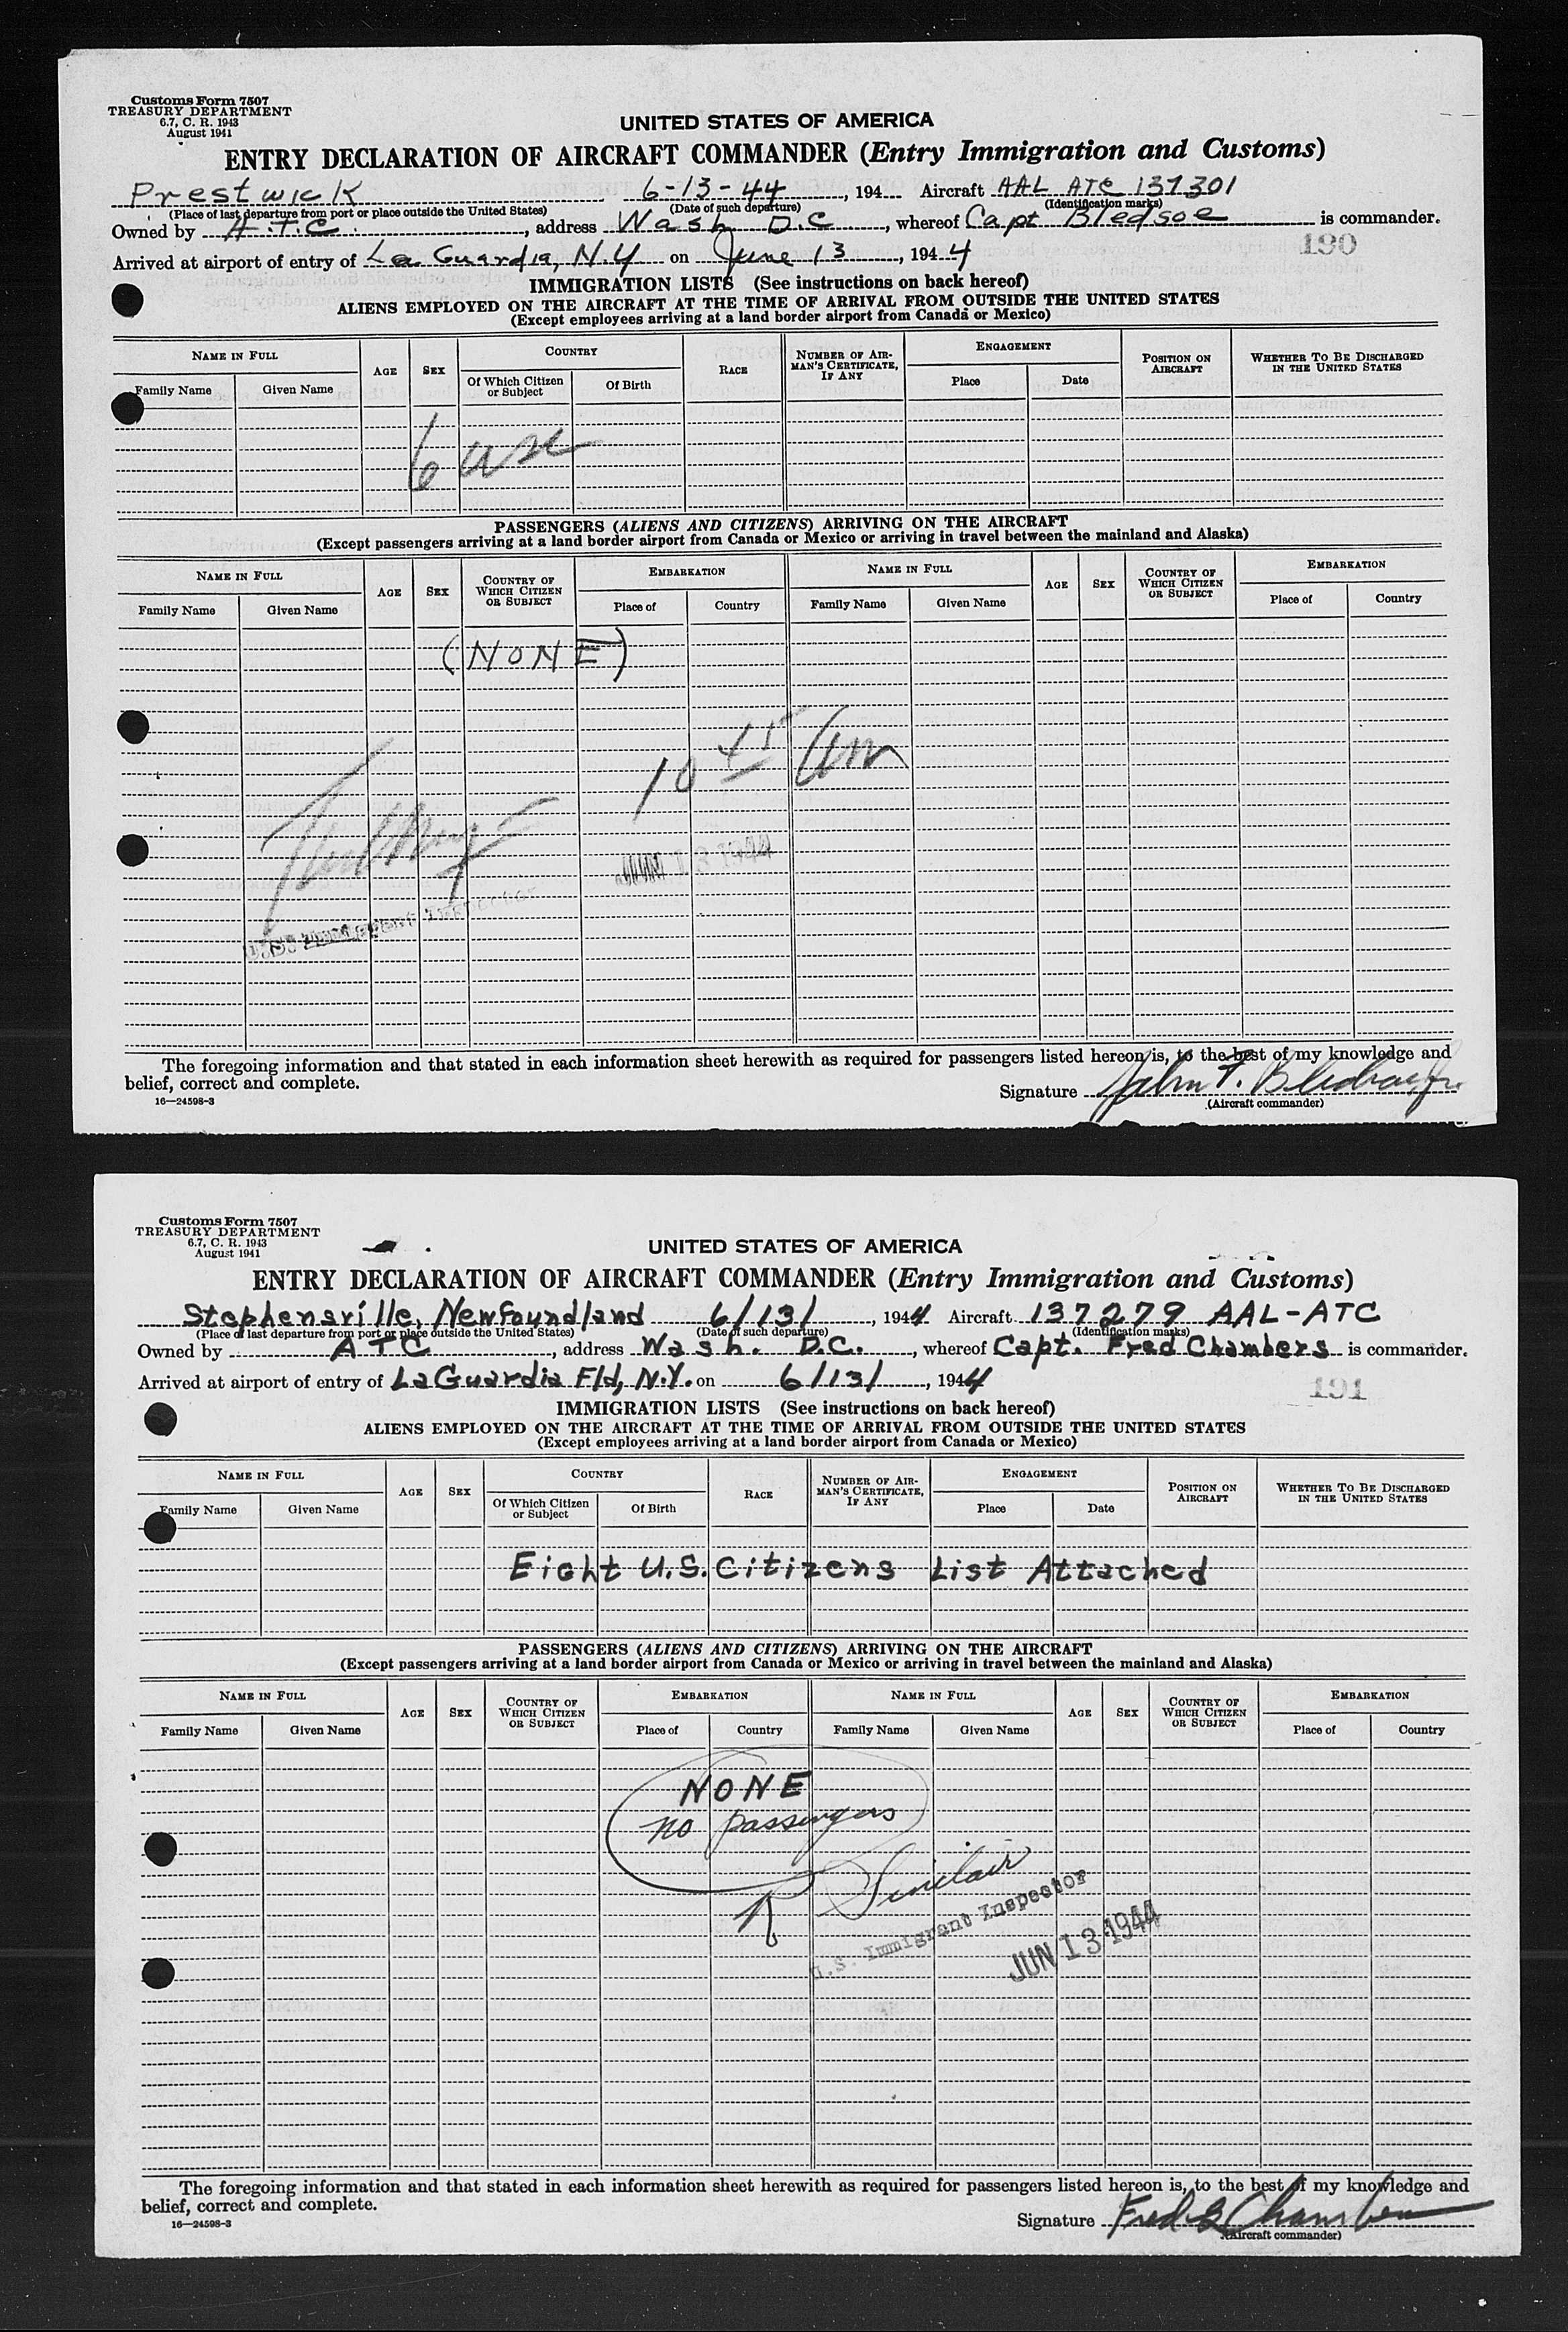 Customs Form 7507
TREASURY DEPARTMENT
6.7, C. R. 1943
August 1941
UNITED STATES OF AMERICA
ENTRY DECLARATION OF AIRCRAFT COMMANDER (Entry Immigration and Customs)
Prestwick 6-13-44, 194 Aircraft AAL ATC 137301
(Place of last departure from port or place outside the United States) (Date of such departure) (Identification marks)
Owned by A.T.C., address Wash D.C, whereof Capt Bledsoe is commander.
190
Arrived at airport of entry of La Guardia, N.Y on June 13, 1944
IMMIGRATION LISTS (See instructions on back hereof)
ALIENS EMPLOYED ON THE AIRCRAFT AT THE TIME OF ARRIVAL FROM OUTSIDE THE UNITED STATES
(Except employees arriving at a land border airport from Canada or Mexico)
NAME IN FULL AGE SEX COUNTRY RACE NUMBER OF AIRMAN'S CERTIFICATE, IF ANY ENGAGEMENT POSITION ON AIRCRAFT WHETHER TO BE DISCHARGED IN THE UNITED STATES
Family Name Given Name Of Which Citizen or Subject Of Birth Place Date
6 usc
PASSENGERS (ALIENS AND CITIZENS) ARRIVING ON THE AIRCRAFT
(Except passengers arriving at a land border airport from Canada or Mexico or arriving in travel between the mainland and Alaska)
NAME IN FULL AGE SEX COUNTRY OF WHICH CITIZEN OR SUBJECT EMBARKATION NAME IN FULL AGE SEX COUNTRY OF WHICH CITIZEN OR SUBJECT EMBARKATION
Family Name Given Name Place of Country Family Name Given Name Place of Country
(NONE)
10 45 am
JUN 13 1944
U.S. Immigrant Inspector
The foregoing information and that stated in each information sheet herewith as required for passengers listed hereon is, to the best of my knowledge and
belief, correct and complete.
Signature John F. Bledsoe Jr.
16—24598-3
(Aircraft commander)
Customs Form 7507
TREASURY DEPARTMENT
6.7, C. R. 1943
August 1941
UNITED STATES OF AMERICA
ENTRY DECLARATION OF AIRCRAFT COMMANDER (Entry Immigration and Customs)
Stephensville, Newfoundland 6/13/, 1944 Aircraft 137279 AAL-ATC
(Place of last departure from port or place outside the United States) (Date of such departure) (Identification marks)
Owned by ATC, address Wash. D.C., whereof Capt. Fred Chambers is commander.
Arrived at airport of entry of LaGuardia Fld, N.Y. on 6/13/, 1944
191
IMMIGRATION LISTS (See instructions on back hereof)
ALIENS EMPLOYED ON THE AIRCRAFT AT THE TIME OF ARRIVAL FROM OUTSIDE THE UNITED STATES
(Except employees arriving at a land border airport from Canada or Mexico)
NAME IN FULL AGE SEX COUNTRY RACE NUMBER OF AIRMAN'S CERTIFICATE, IF ANY ENGAGEMENT POSITION ON AIRCRAFT WHETHER TO BE DISCHARGED IN THE UNITED STATES
Family Name Given Name Of Which Citizen or Subject Of Birth Place Date
Eight U.S. Citizens List Attached
PASSENGERS (ALIENS AND CITIZENS) ARRIVING ON THE AIRCRAFT
(Except passengers arriving at a land border airport from Canada or Mexico or arriving in travel between the mainland and Alaska)
NAME IN FULL AGE SEX COUNTRY OF WHICH CITIZEN OR SUBJECT EMBARKATION NAME IN FULL AGE SEX COUNTRY OF WHICH CITIZEN OR SUBJECT EMBARKATION
Family Name Given Name Place of Country Family Name Given Name Place of Country
NONE
no passengers
R Sinclair
U.S. Immigrant Inspector
JUN 13 1944
The foregoing information and that stated in each information sheet herewith as required for passengers listed hereon is, to the best of my knowledge and
belief, correct and complete.
Signature Fred S Chambers
16—24598-3
(Aircraft commander)